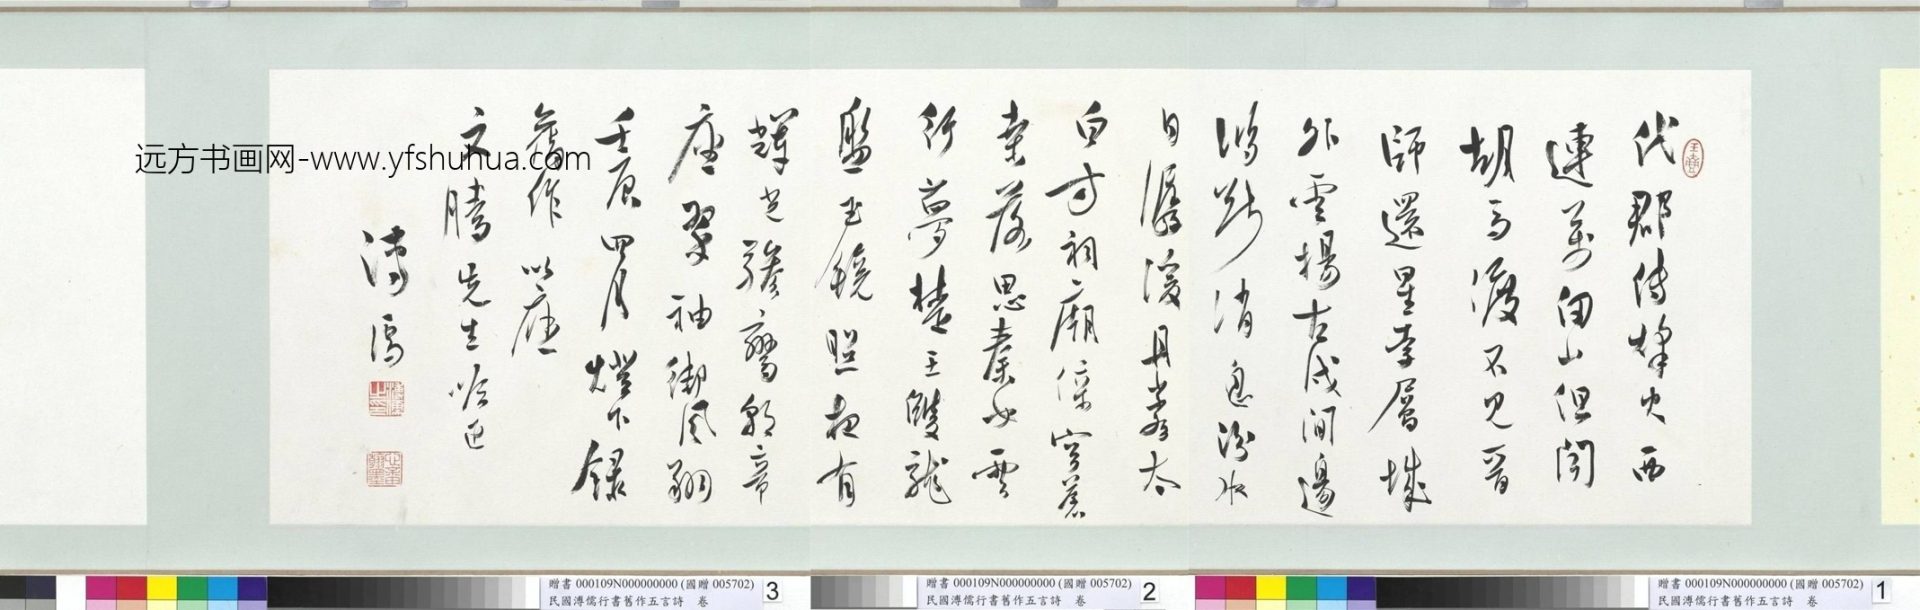 代郡傳烽火西
連萬回山但聞
胡馬渡不見晉
師還星孛層城
外雲揚古戍間邊
鴻斷消息汾水
日潺湲丹嶂太
白寺祠廟保穹蒼
葉落思秦女雲
行夢楚王雙龍
盤玉鏡照夜有
輝光驂鸞朝帝
座翠袖御風翔
壬辰四月燈下錄
舊作以應
文騰先生吟正
溥儒
远方书画网-www.yfshuhua.com
贈書 000109N000000000 (國贈 005702)
民國溥儒行書舊作五言詩 卷
1
贈書 000109N000000000 (國贈 005702)
民國溥儒行書舊作五言詩 卷
2
贈書 000109N000000000 (國贈 005702)
民國溥儒行書舊作五言詩 卷
3